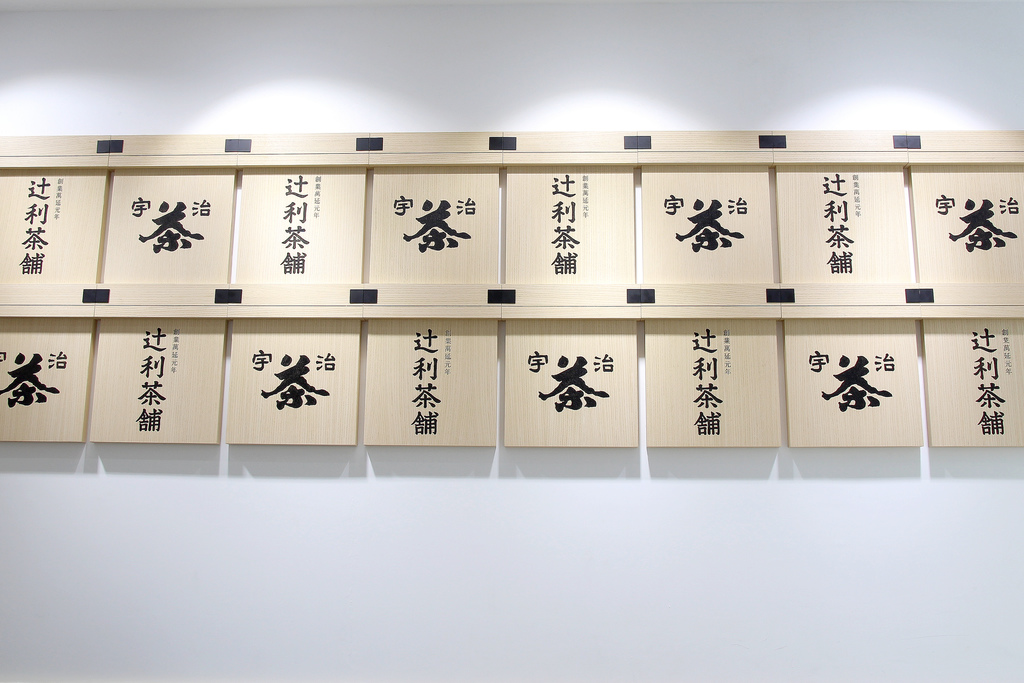 創業萬延元年
辻利茶舗
宇治
茶
創業萬延元年
辻利茶舗
宇治
茶
創業萬延元年
辻利茶舗
宇治
茶
創業萬延元年
辻利茶舗
宇治
茶
宇治
茶
創業萬延元年
辻利茶舗
宇治
茶
創業萬延元年
辻利茶舗
宇治
茶
創業萬延元年
辻利茶舗
宇治
茶
創業萬延元年
辻利茶舗